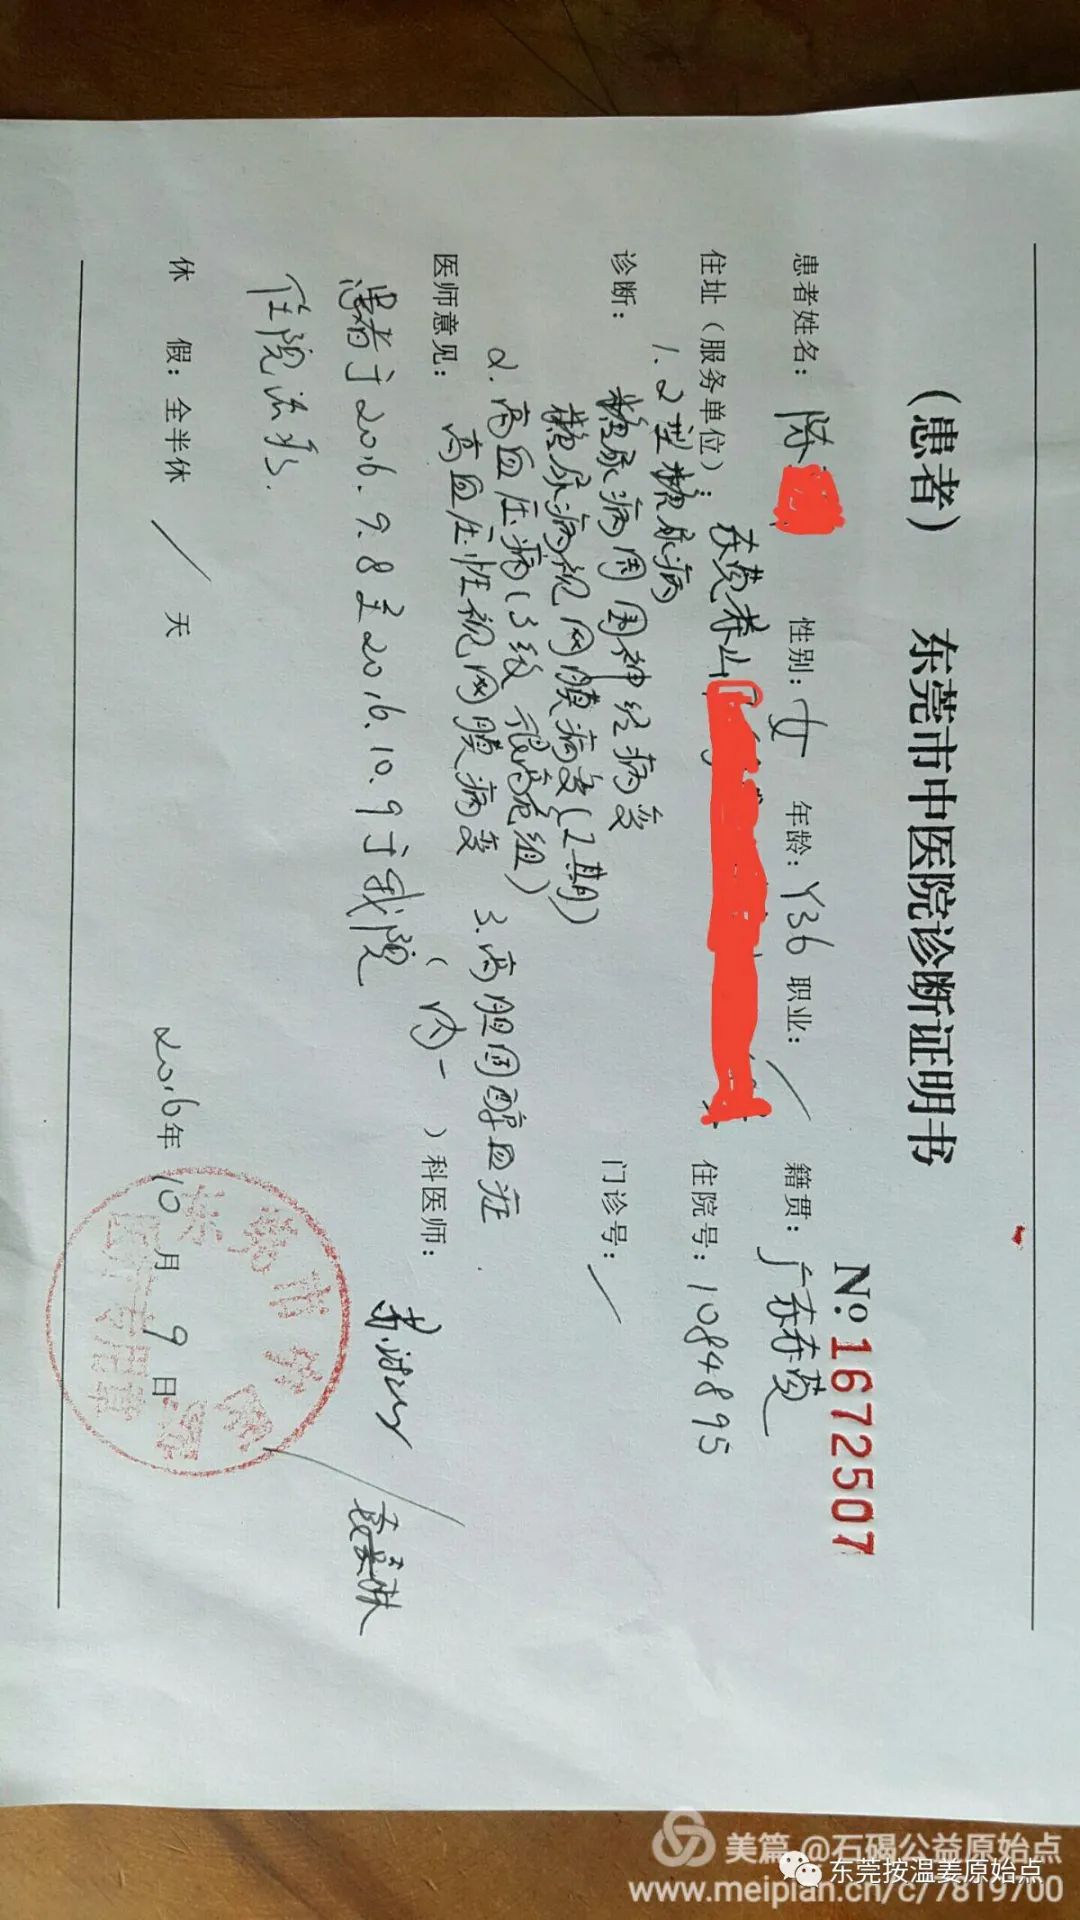 (患者) 东莞市中医院诊断证明书
No: 1672507
患者姓名: 陈 性别: 女 年龄: Y36 职业: / 籍贯: 广东东莞
住址(服务单位): 东莞茶山 住院号: 1084895
诊断: 1. 2型糖尿病 门诊号: /
糖尿病周围神经病变
糖尿病视网膜病变(2期)
2. 高血压病(3级 很高危组) 3. 高胆固醇血症.
高血压性视网膜病变
医师意见: (内一)科医师:
患者于2016.9.8至2016.10.9于我院
住院治疗.
休 假: 全半休 / 天 2016年10月9日
美篇 @石碣公益原始点
东莞按温姜原始点
www.meipian.cn/c/7819700